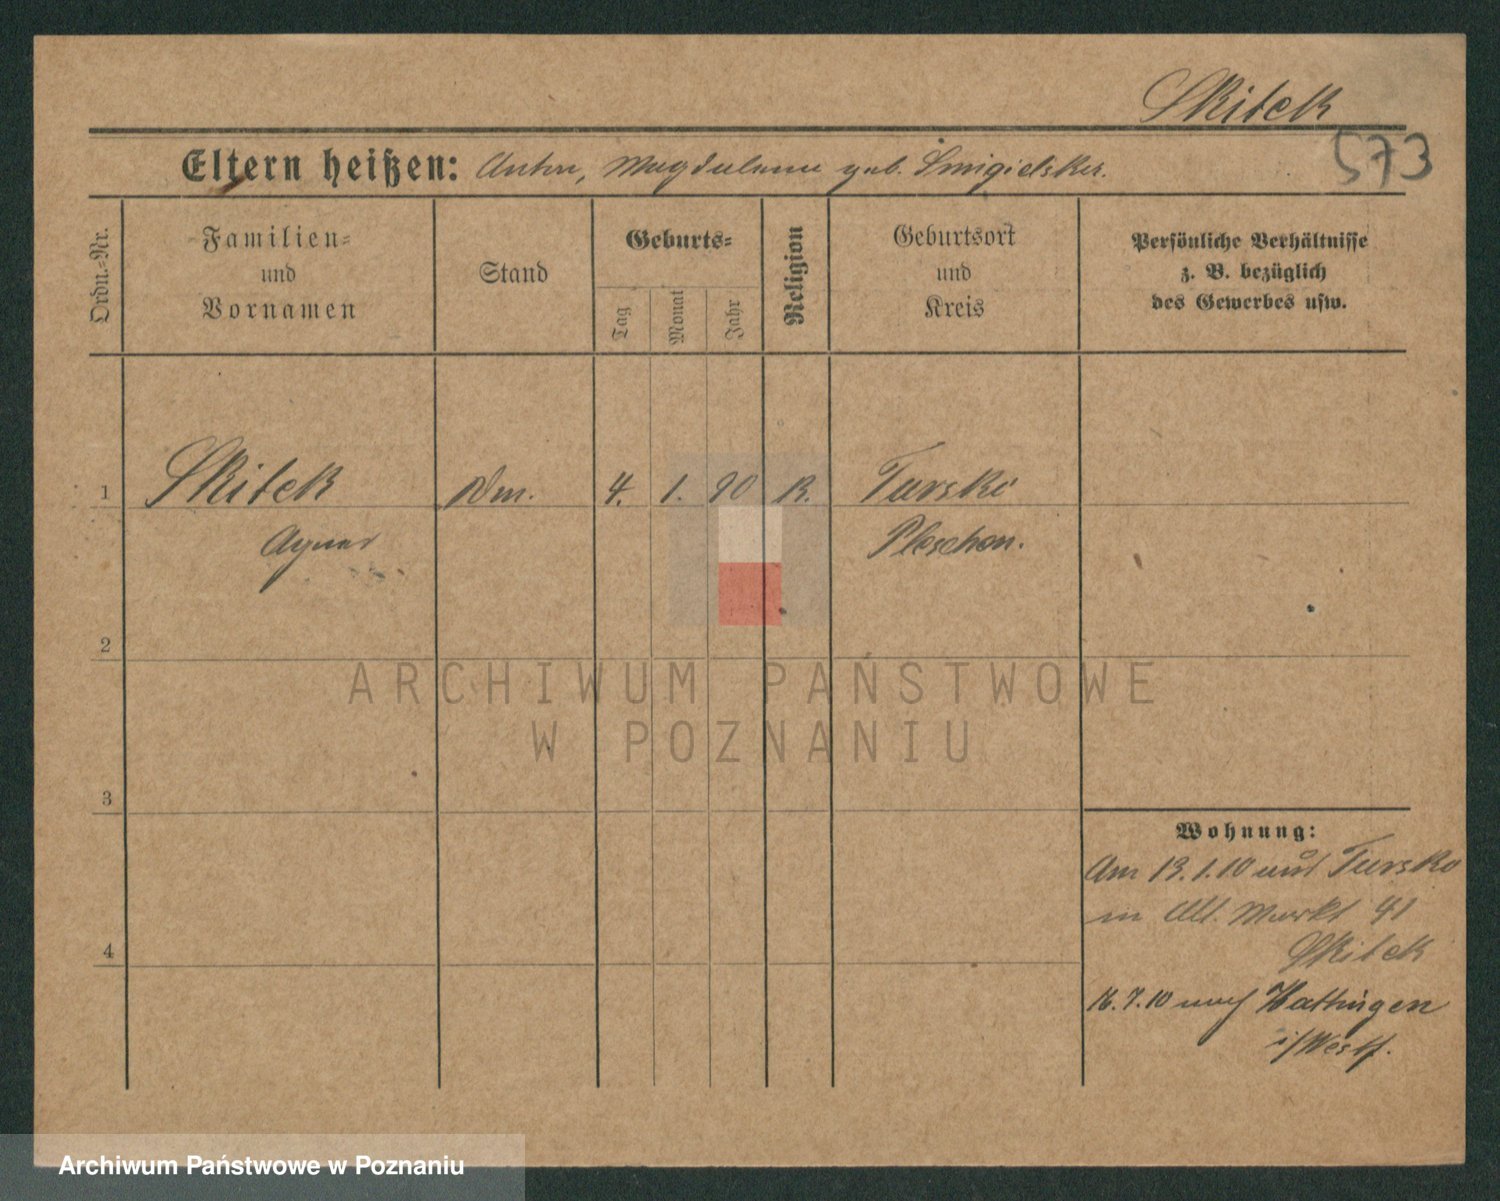 Skitek
573
Eltern heißen: Anton, Magdalena geb. Smigielska.
Ordn.-Nr.
Familien-
und
Vornamen
Stand
Geburts-
Tag
Monat
Jahr
Religion
Geburtsort
und
Kreis
Persönliche Verhältnisse
z. B. bezüglich
des Gewerbes usw.
1 Skitek 4. 1. 90 Tursko
Agnes Pleschen.
2
3
4
Wohnung:
Am 13.1.10 aus Tursko
in Alt. Markt 41
Skitek
16.7.10 nach Hattingen
i/Westf.
ARCHIWUM PAŃSTWOWE
W POZNANIU
Archiwum Państwowe w Poznaniu